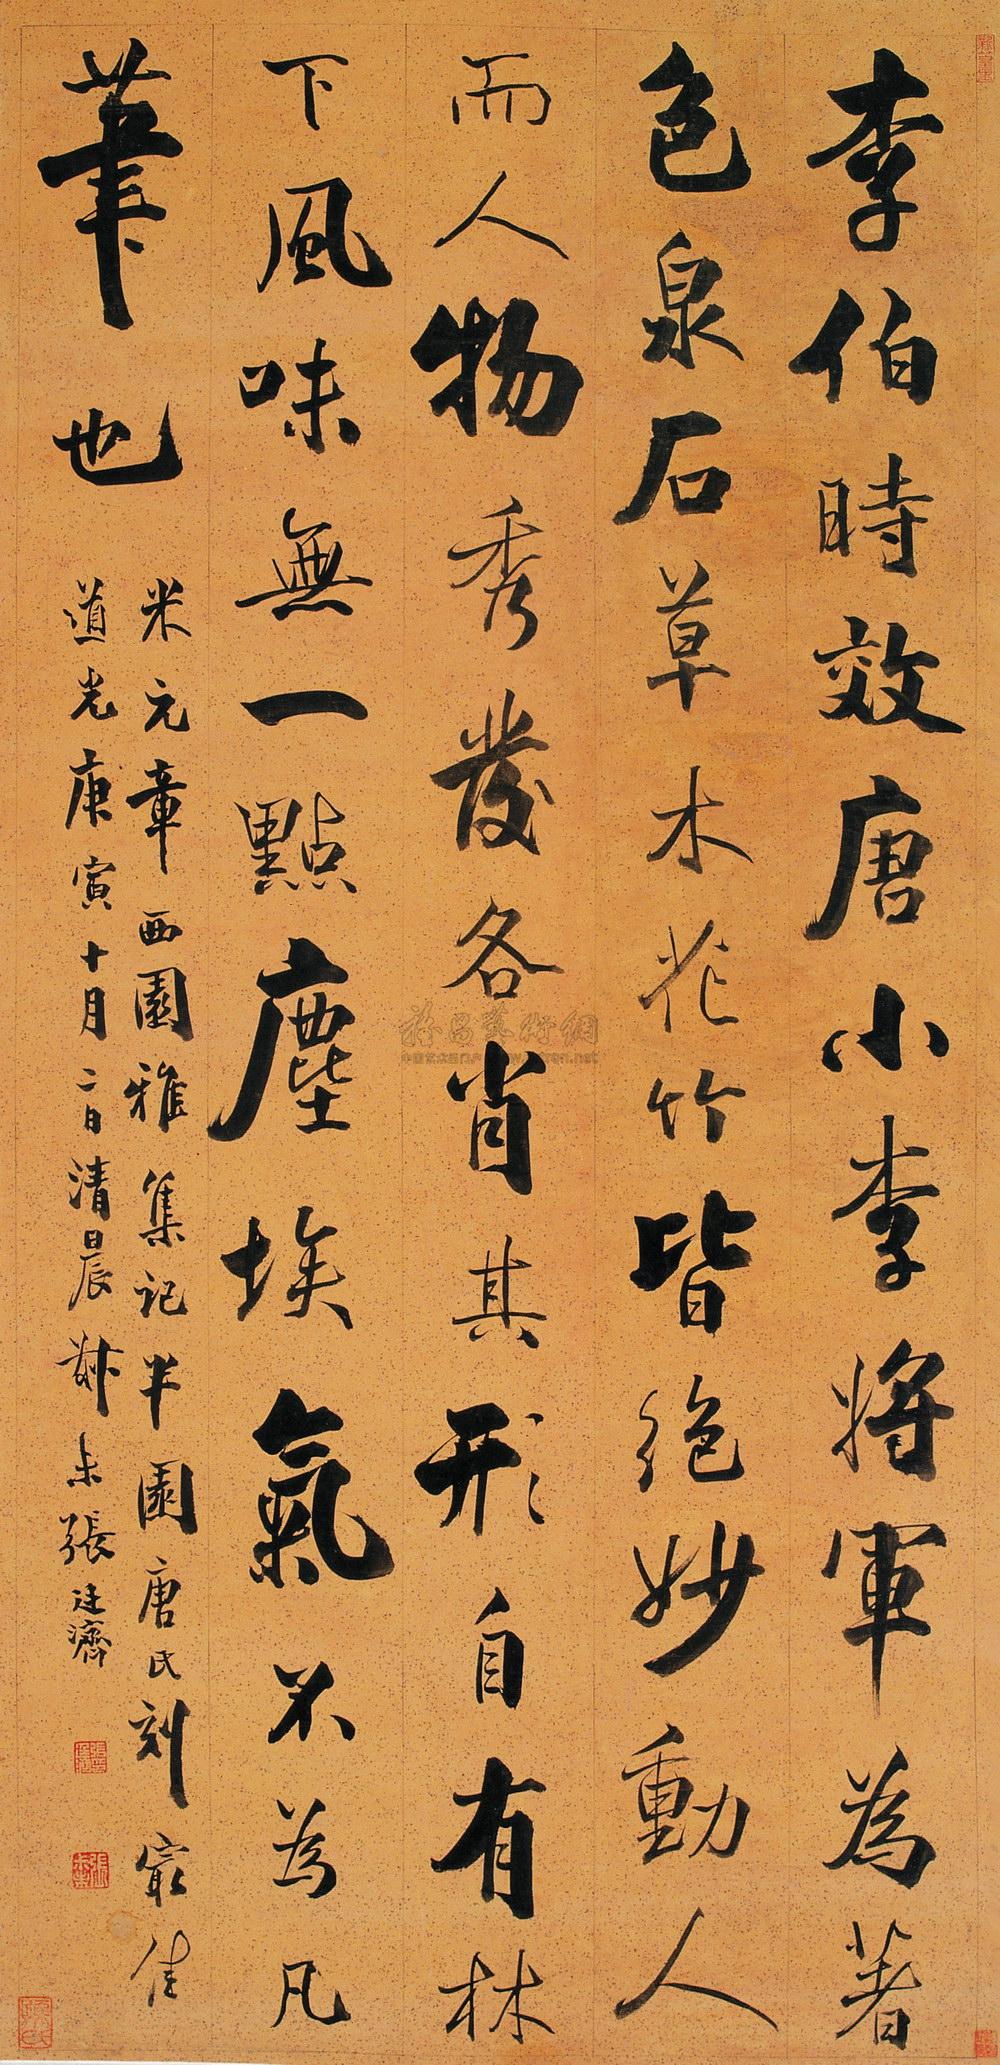 李伯時效唐小李將軍為著
色泉石草木花竹皆絶妙動人
而人物秀發各肖其形自有林
下風味無一點塵埃氣不為凡
筆也
米元章西園雅集記半園唐氏刻最佳
道光庚寅十月二日清晨叔未張廷濟